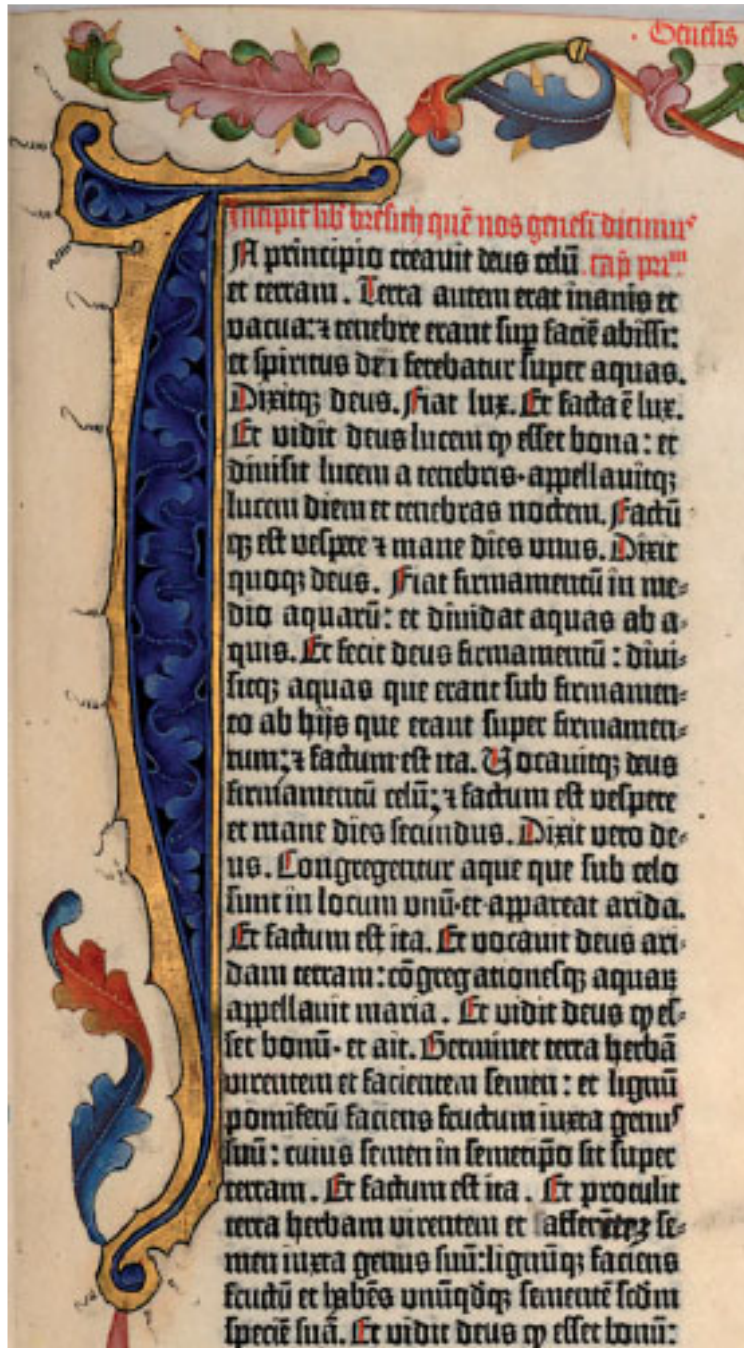 · Genesis
Incipit lib̛ bresith quē nos genesī dicimus
In principio creauit deus celū cap̄ prīm
et terram. Terra autem erat inanis et
vacua: ⁊ tenebre erant sup̄ faciē abissi:
et spiritus dei ferebatur super aquas.
Dixitqꝫ deus. Fiat lux. Et facta ē lux.
Et vidit deus lucem ꝙ esset bona: et
diuisit lucem a tenebris·appellauitqꝫ
lucem diem et tenebras noctem. Factū
qꝫ est vespere ⁊ mane dies vnus. Dixit
quoqꝫ deus. Fiat firmamentū in me-
dio aquarū: et diuidat aquas ab a-
quis. Et fecit deus firmamentū: diui-
sitqꝫ aquas que erant sub firmamen-
to ab hijs que erant super firmamen-
tum: ⁊ factum est ita. Vocauitqꝫ deus
firmamentū celū: ⁊ factum est vespere
et mane dies secundus. Dixit vero de-
us. Congregentur aque que sub celo
sunt in locum vnū·et appareat arida.
Et factum est ita. Et vocauit deus ari-
dam terram: cōgregationesqꝫ aquaꝝ
appellauit maria. Et vidit deus ꝙ es-
set bonū· et ait. Germinet terra herbā
virentem et facientem semen: et lignū
pomiferū faciens fructum iuxta genus
suū: cuius semen in semetip̄o sit super
terram. Et factum est ita. Et protulit
terra herbam virentem et afferētē se-
men iuxta genus suū: lignūqꝫ faciens
fructū et habēs vnūqdqꝫ sementē scdm
speciē suā. Et vidit deus ꝙ esset bonū: